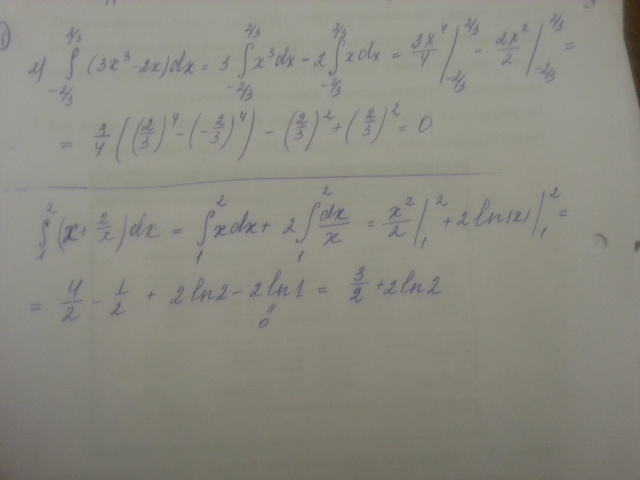 2) ∫_{-2/3}^{2/3} (3x³-2x)dx = 3 ∫_{-2/3}^{2/3} x³dx - 2 ∫_{-2/3}^{2/3} xdx = 3x⁴/4 |_{-2/3}^{2/3} - 2x²/2 |_{-2/3}^{2/3} =
= 3/4 ((2/3)⁴ - (-2/3)⁴) - (2/3)² + (2/3)² = 0
∫_1^2 (x + 2/x)dx = ∫_1^2 xdx + 2 ∫_1^2 dx/x = x²/2 |_1^2 + 2ln|x| |_1^2 =
= 4/2 - 1/2 + 2ln2 - 2ln1 = 3/2 + 2ln2
"
0